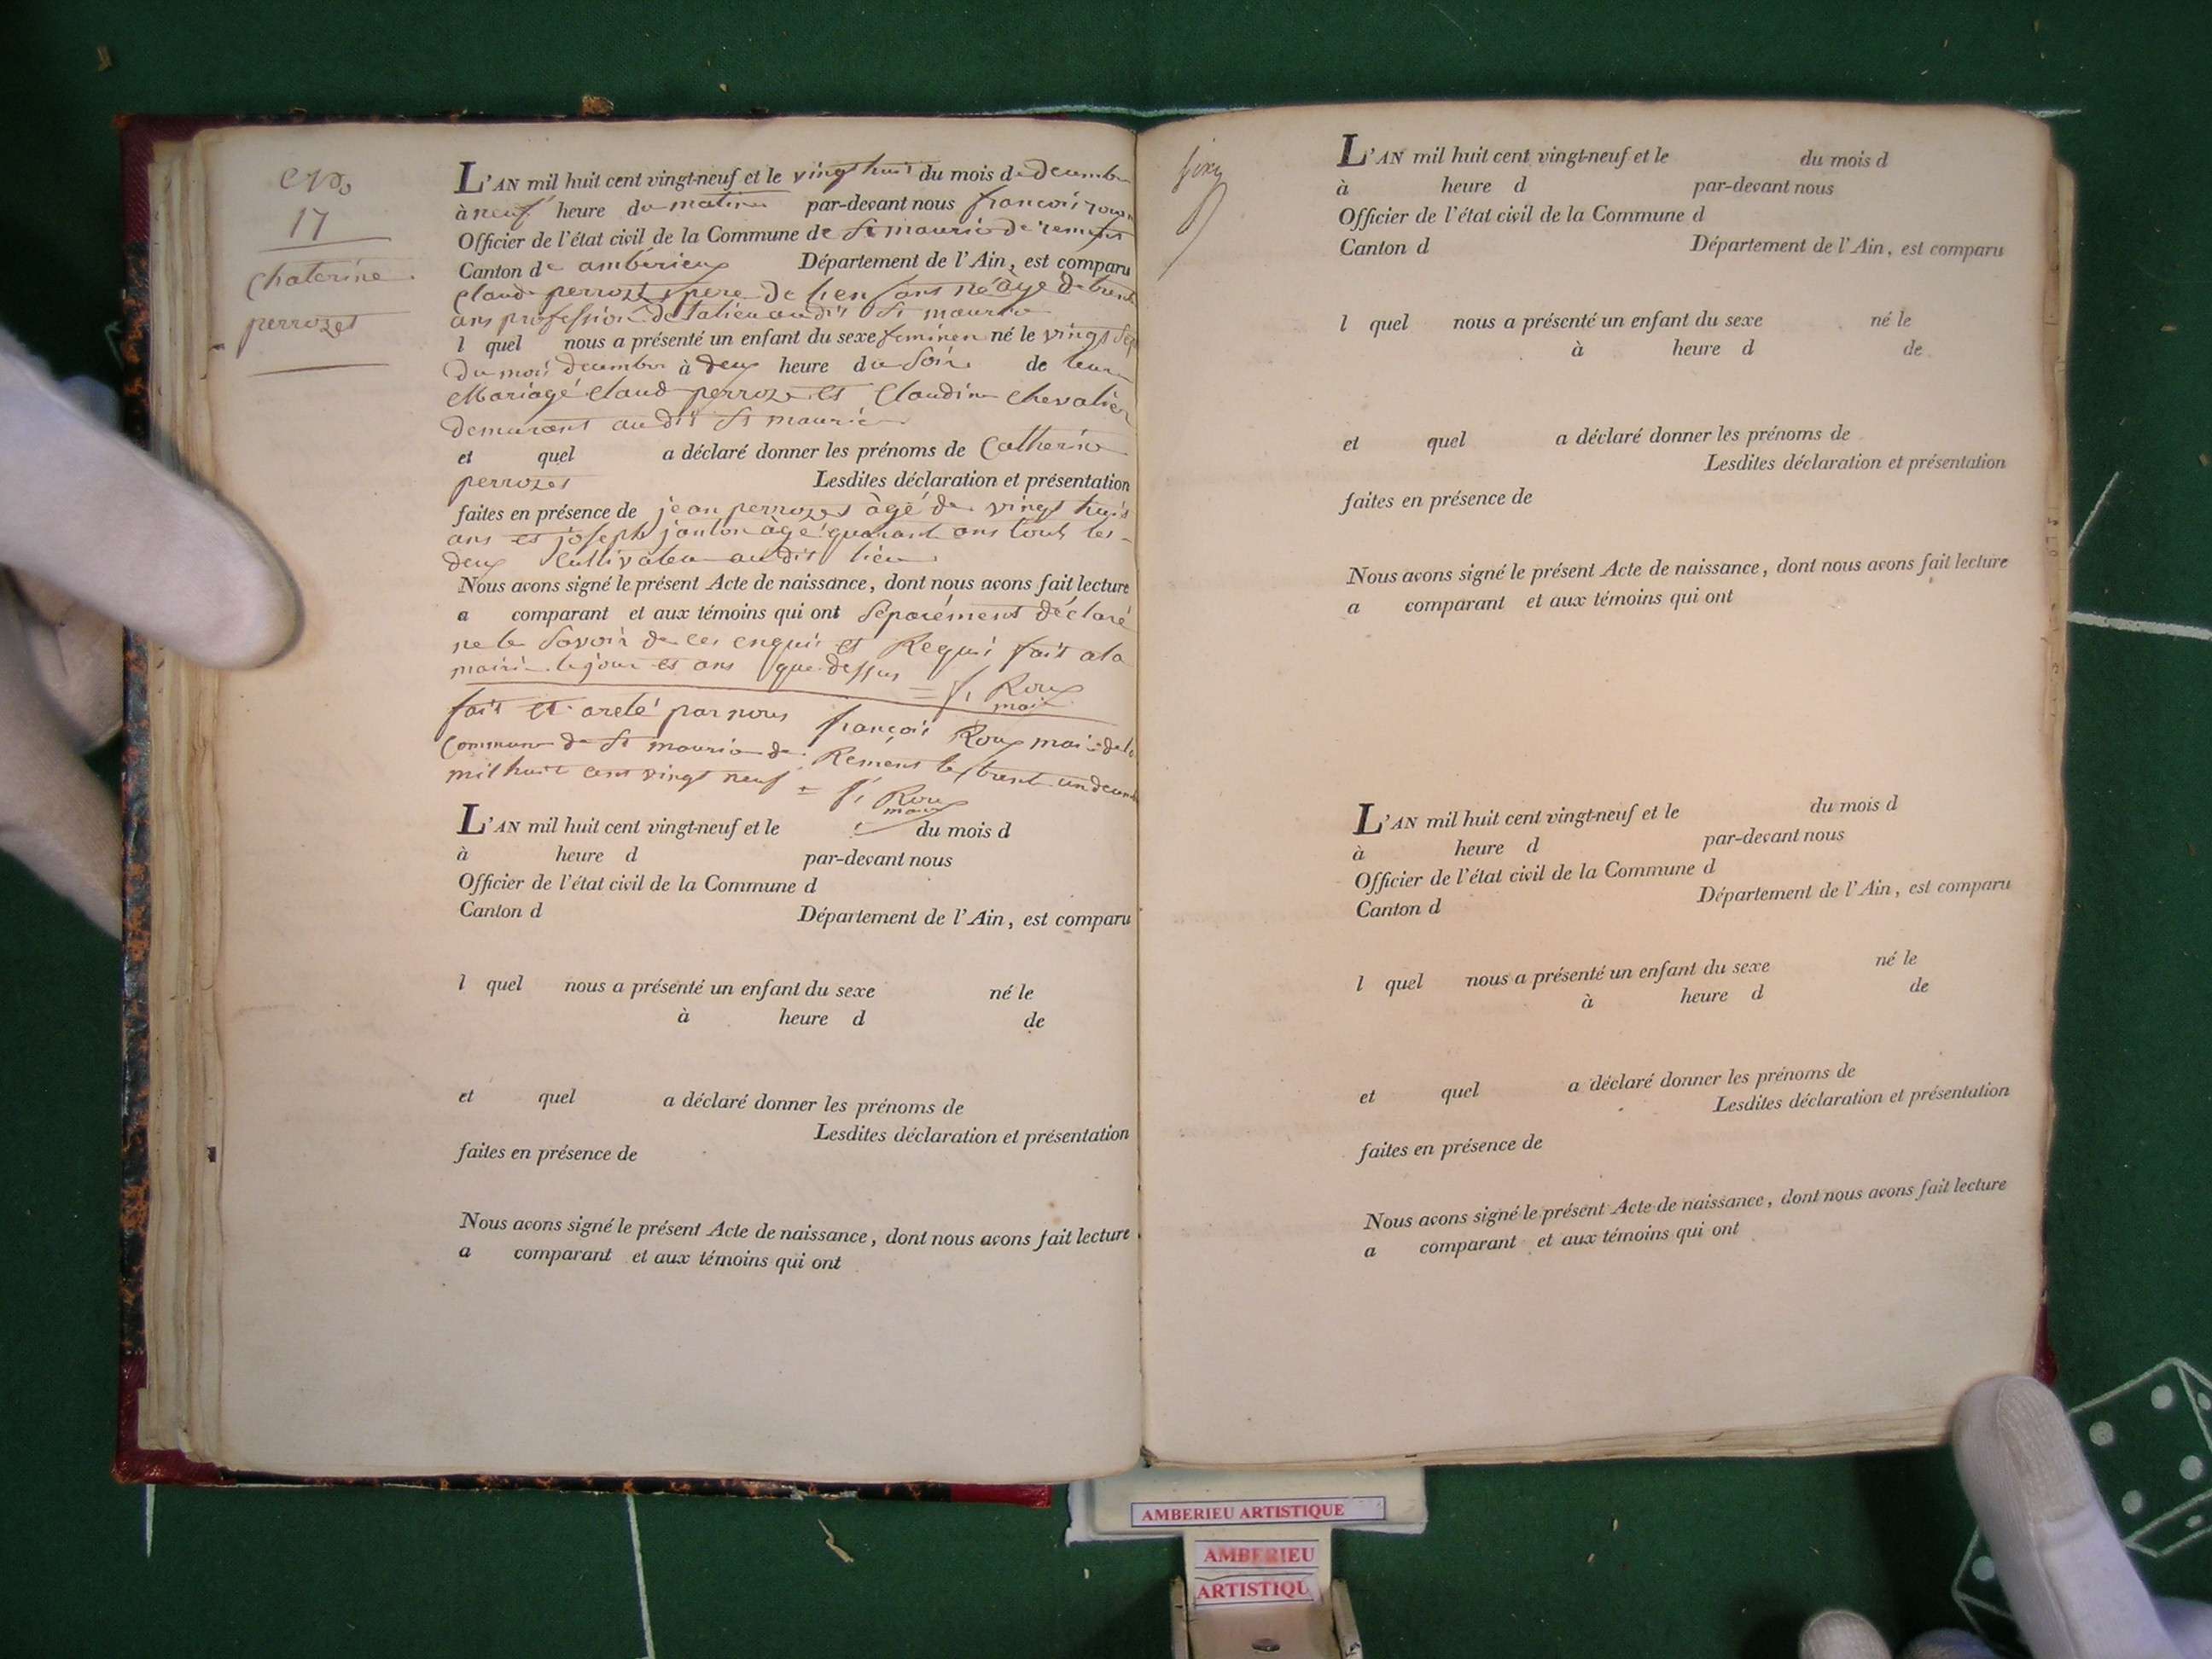 No
17
Chaterine
perrozet
L'AN mil huit cent vingt-neuf et le vingt huit du mois de decembre
à neuf heure du matin par-devant nous françois roux
Officier de l'état civil de la Commune de St maurice de remens
Canton de amberieux Département de l'Ain, est comparu
claude perrozet pere de lenfant né âgé de trente
ans profession audit St maurice
l quel nous a présenté un enfant du sexe feminen né le vingt sept
du moi decembre à deux heure du Soir de leur
Mariage claud perrozet et Claudine chevalier
demurant audit St maurice
et quel a déclaré donner les prénoms de Catherine
perrozet Lesdites déclaration et présentation
faites en présence de jean perrozet âgé de vingt huit
ans et joseph âgé quarant ans tout les
deux Cultivateu audit lieu
Nous avons signé le présent Acte de naissance, dont nous avons fait lecture
a comparant et aux témoins qui ont séparément déclaré
ne le Savoir de ces enquis et Requi fait a la
mairie le jour et ans que dessus = f. Roux
maire
fait et areté par nous françois Roux maire de la
Commune de St maurice de Remens le trent un decembre
mil huit cent vingt neuf = f. Roux
maire
L'AN mil huit cent vingt-neuf et le du mois d
à heure d par-devant nous
Officier de l'état civil de la Commune d
Canton d Département de l'Ain, est comparu
l quel nous a présenté un enfant du sexe né le
à heure d de
et quel a déclaré donner les prénoms de
Lesdites déclaration et présentation
faites en présence de
Nous avons signé le présent Acte de naissance, dont nous avons fait lecture
a comparant et aux témoins qui ont
L'AN mil huit cent vingt-neuf et le du mois d
à heure d par-devant nous
Officier de l'état civil de la Commune d
Canton d Département de l'Ain, est comparu
l quel nous a présenté un enfant du sexe né le
à heure d de
et quel a déclaré donner les prénoms de
Lesdites déclaration et présentation
faites en présence de
Nous avons signé le présent Acte de naissance, dont nous avons fait lecture
a comparant et aux témoins qui ont
L'AN mil huit cent vingt-neuf et le du mois d
à heure d par-devant nous
Officier de l'état civil de la Commune d
Canton d Département de l'Ain, est comparu
l quel nous a présenté un enfant du sexe né le
à heure d de
et quel a déclaré donner les prénoms de
Lesdites déclaration et présentation
faites en présence de
Nous avons signé le présent Acte de naissance, dont nous avons fait lecture
a comparant et aux témoins qui ont
AMBERIEU ARTISTIQUE
AMBERIEU
ARTISTIQU